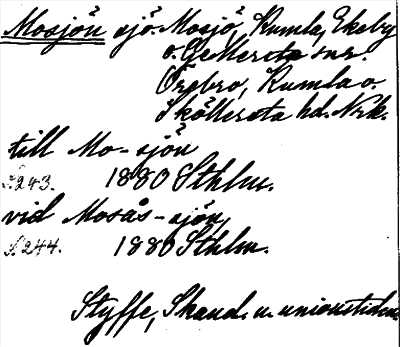 Mosjön sjö. Mosjö, Kumla, Ekeby
o. Gellersta snr.
Örebro, Kumla o.
Sköllersta hd. Nrk.
till Mo-sjön
s. 243. 1880 Sthlm.
vid Mosås-sjön
s. 244. 1880 Sthlm.
Styffe, Skand. u. unionstiden.